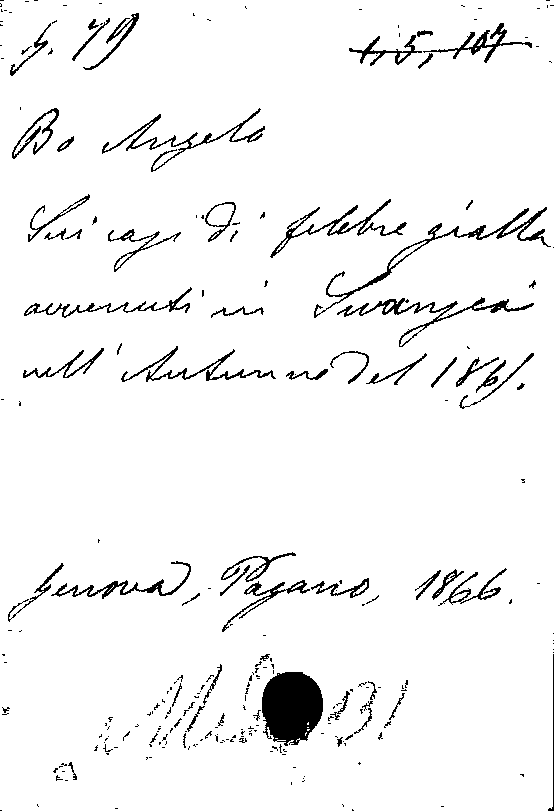 G. 79
1, 5, 107
Bo Angelo
Sui casi di febbre gialla
avvenuti in Swansea
nell' Autunno del 1865.
Genova, Pagano, 1866.
B1